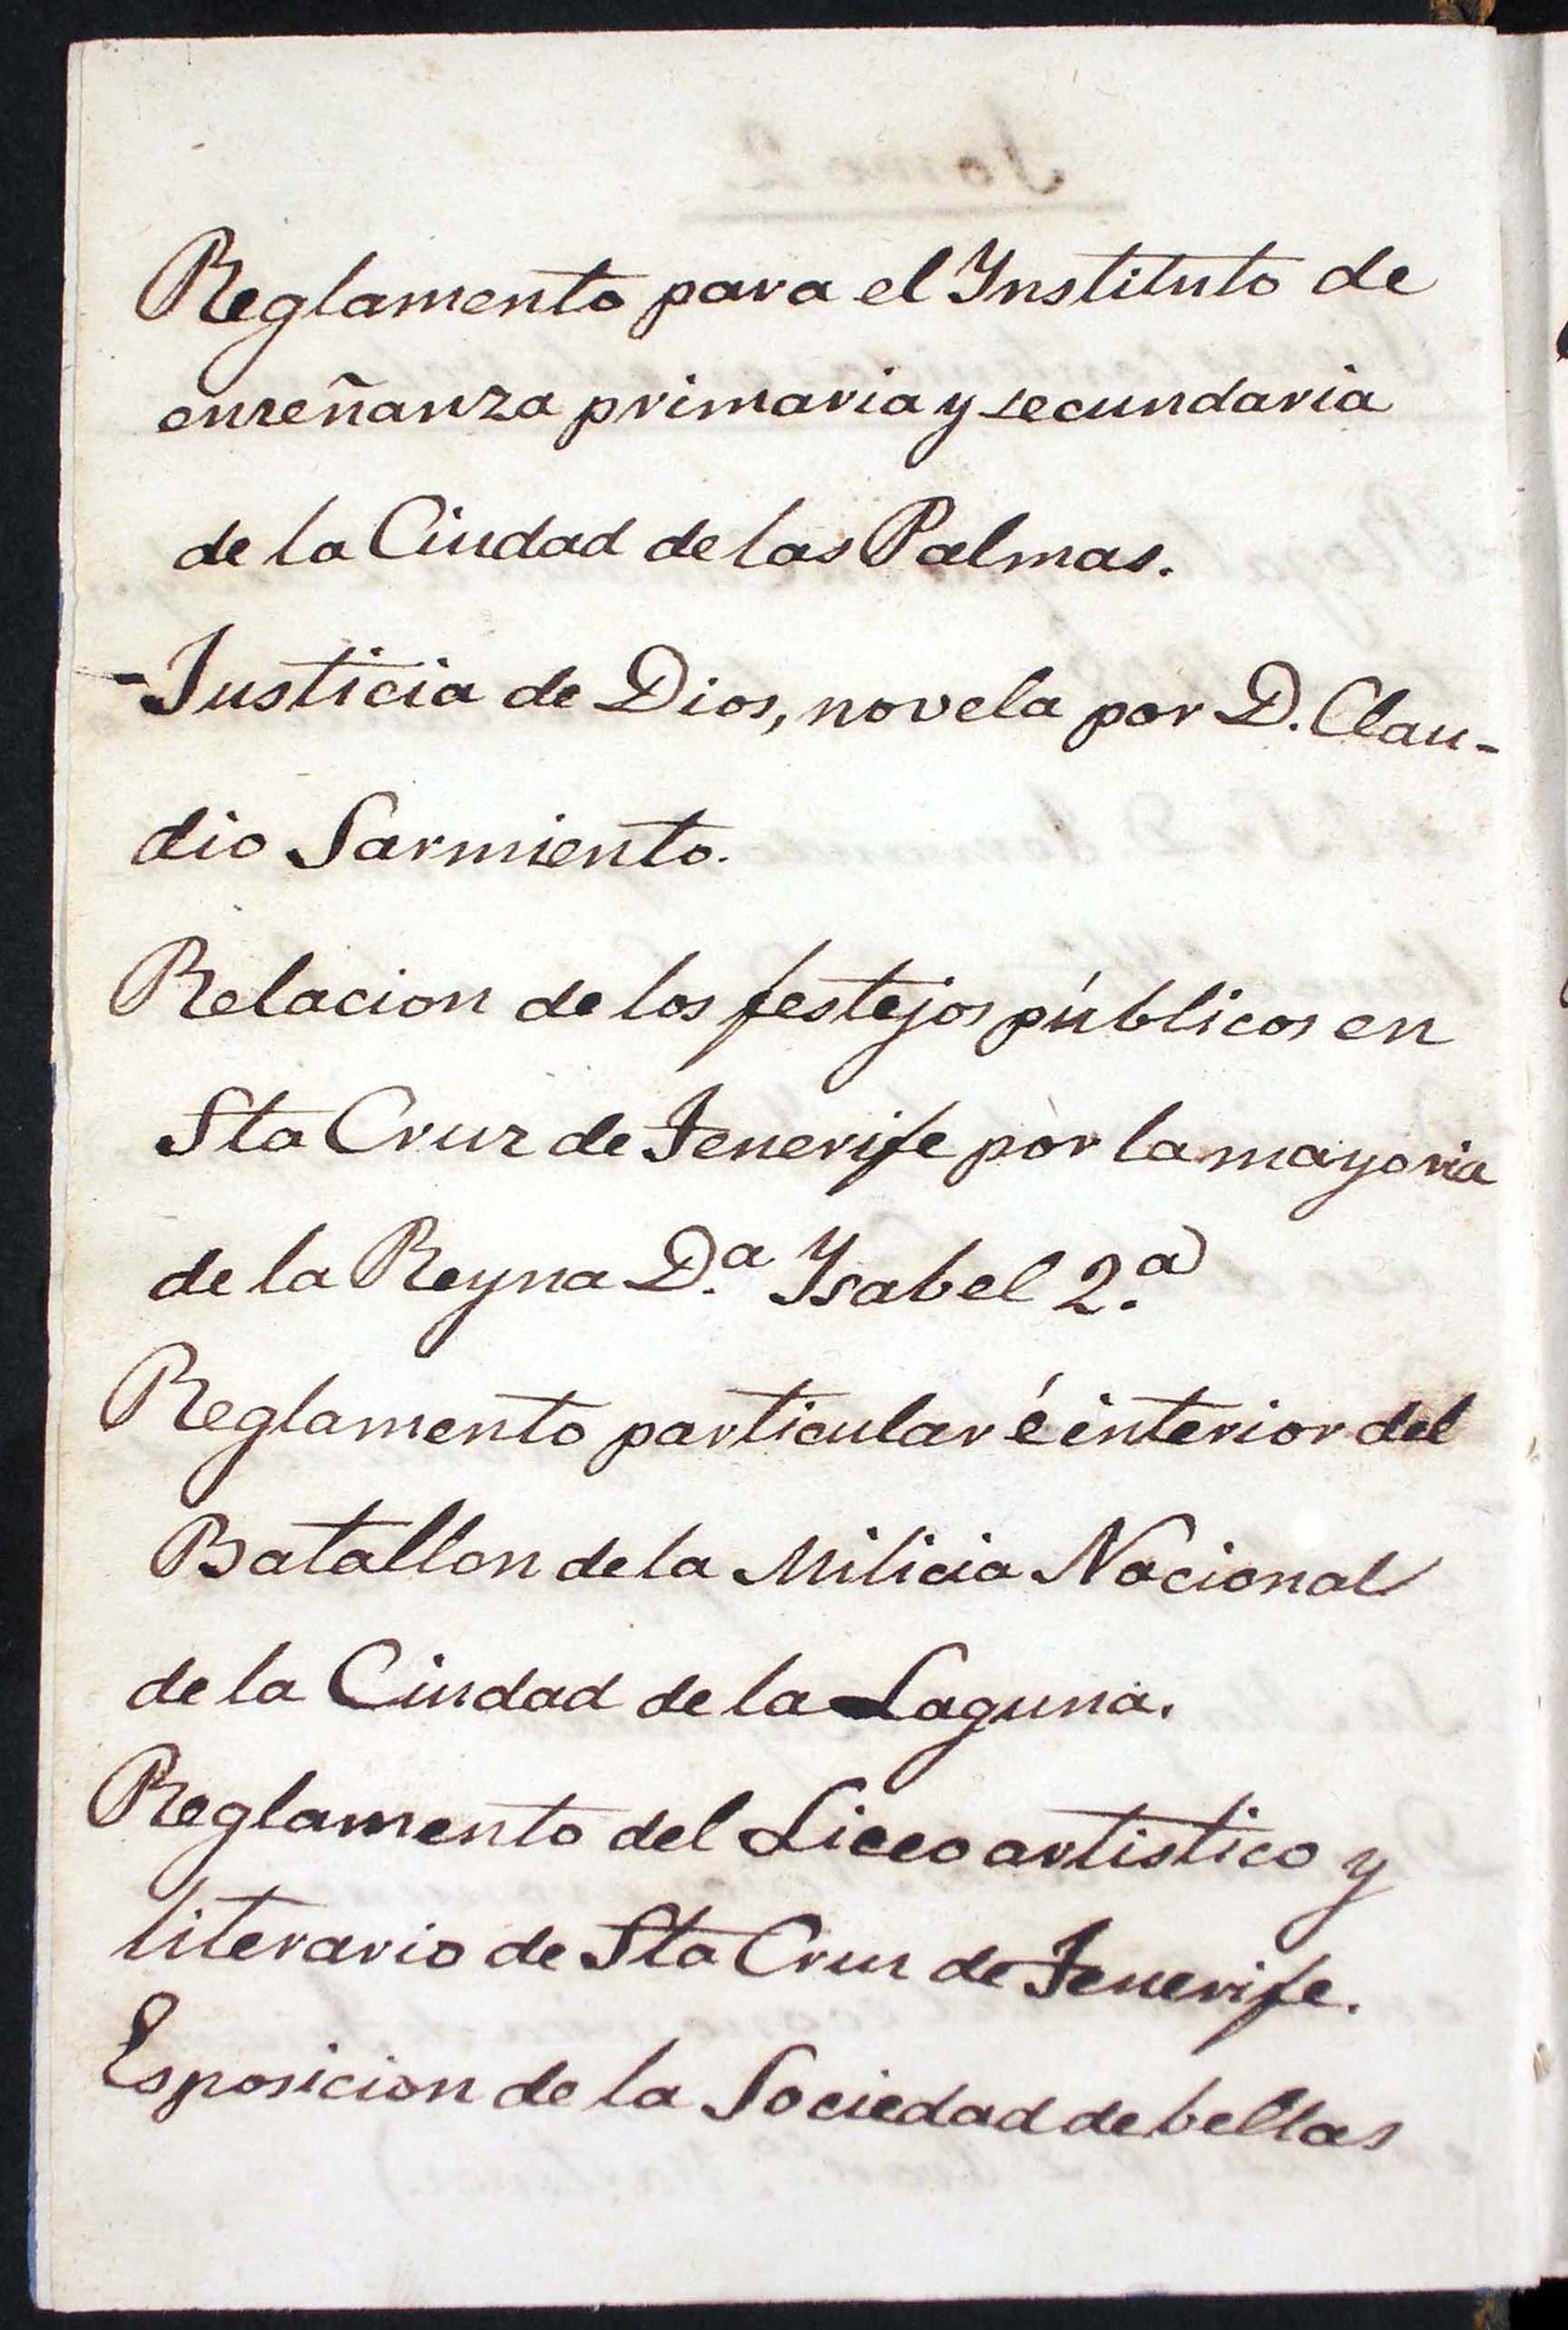 Reglamento para el Ynstituto de
enseñanza primaria y secundaria
de la Ciudad de las Palmas.
-Justicia de Dios, novela por D. Clau-
dio Sarmiento.
Relacion de los festejos públicos en
Sta Cruz de Tenerife por la mayoria
de la Reyna D.ª Ysabel 2.ª
Reglamento particular é interior del
Batallon de la Milicia Nacional
de la Ciudad de la Laguna.
Reglamento del Liceo artistico y
literario de Sta Cruz de Tenerife.
Esposicion de la Sociedad de bellas